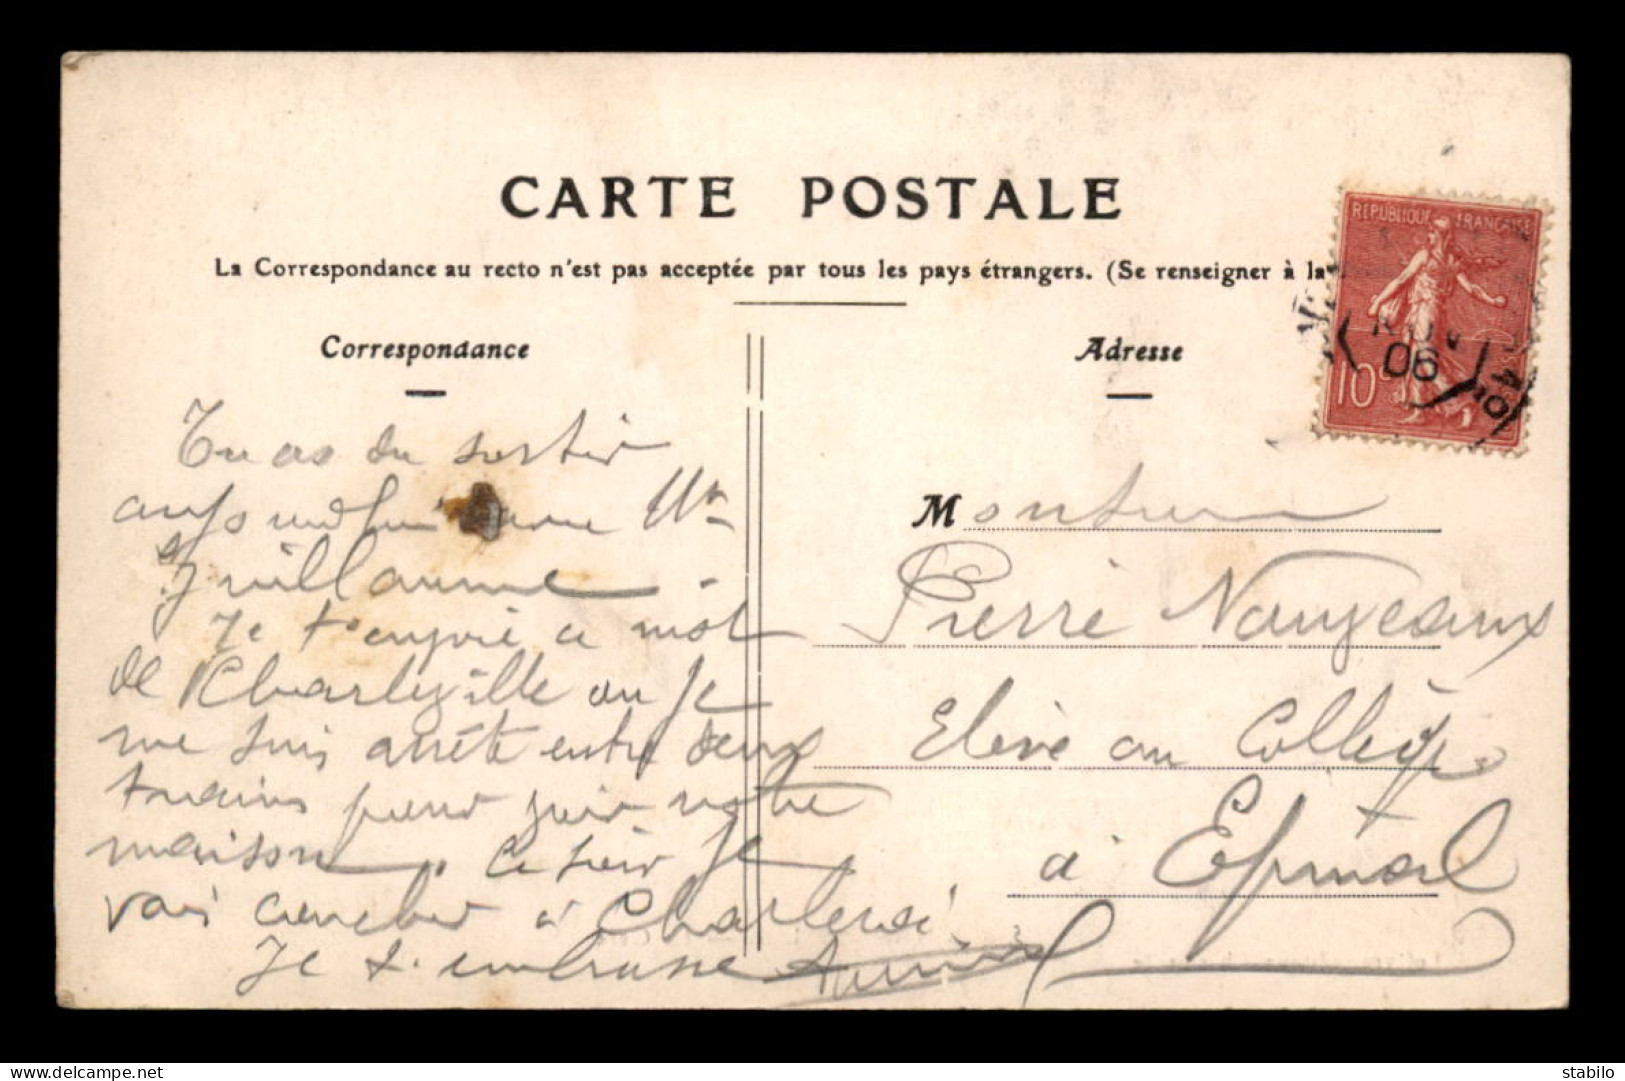 CARTE POSTALE
La Correspondance au recto n'est pas acceptée par tous les pays étrangers. (Se renseigner à la
Correspondance
Adresse
REPUBLIQUE FRANÇAISE
10c
06
Tu as du sortir
aujourd'hui avec Mr
Guillaume.
Je t'envoie ce mot
de Charleville ou je
me suis arrêté entre deux
trains pour voir notre
maison. Ce soir je
vais coucher à Charleroi
Je t'embrasse
Monsieur
Pierre Naugeaux
Elève au Collège
à Epinal
delcampe.net
stabilo